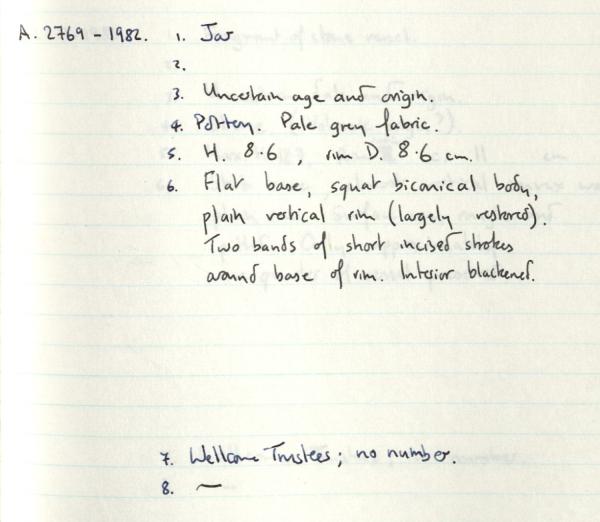 A. 2769 - 1982. 1. Jar
2.
3. Uncertain age and origin.
4. Pottery. Pale grey fabric.
5. H. 8.6 , rim D. 8.6 cm.
6. Flat base, squat biconical body,
plain vertical rim (largely restored).
Two bands of short incised strokes
around base of rim. Interior blackened.
7. Wellcome Trustees; no number.
8. —